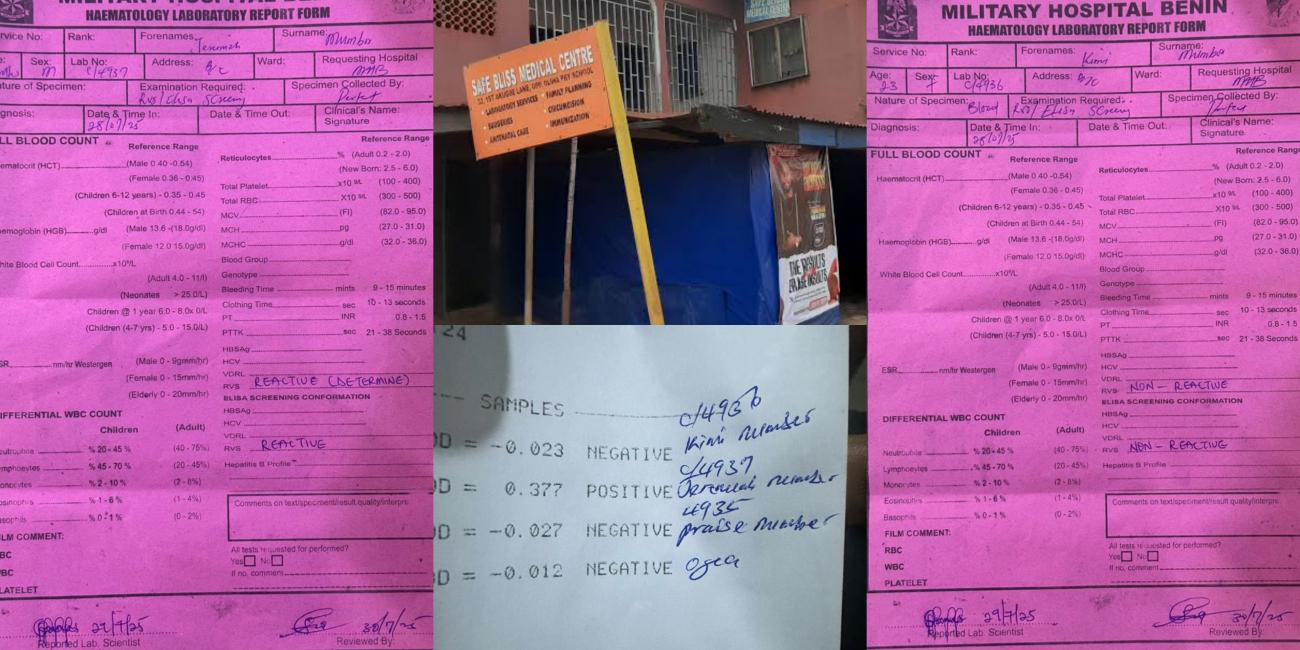 MILITARY HOSPITAL BENIN
HAEMATOLOGY LABORATORY REPORT FORM
Service No: Rank: Forenames: Jeremiah Surname: Mumber
Sex: M Lab No: C/4937 Address: Ward: Requesting Hospital
Nature of Specimen: Examination Required: Rvs/Elisa Screeny Specimen Collected By:
Diagnosis: Date & Time In: 28/07/25 Date & Time Out: Clinical's Name:
Signature
FULL BLOOD COUNT
Reference Range
Haematocrit (HCT) (Male 0.40 -0.54)
(Female 0.36 - 0.45)
(Children 6-12 years) - 0.35 - 0.45
(Children at Birth 0.44 - 54)
Haemoglobin (HGB) g/dl (Male 13.6 -(18.0g/dl)
(Female 12.0 15.0g/dl)
White Blood Cell Count x10⁹/L
(Adult 4.0 - 11/l)
(Neonates > 25.0/L)
Children @ 1 year 6.0 - 8.0x 0/L
(Children (4-7 yrs) - 5.0 - 15.0/L)
ESR nm/hr Westergen (Male 0 - 9mm/hr)
(Female 0 - 15mm/hr)
(Elderly 0 - 20mm/hr)
DIFFERENTIAL WBC COUNT
Children (Adult)
Neutrophils % 20 - 45 % (40 - 75%)
Lymphocytes % 45 - 70 % (20 - 45%)
Monocytes % 2 - 10% (2 - 8%)
Eosinophils % 1 - 6 % (1 - 4%)
Basophils % 0 - 1 % (0 - 2%)
FILM COMMENT:
RBC
WBC
PLATELET
Reference Range
Reticulocytes % (Adult 0.2 - 2.0)
(New Born: 2.5 - 6.0)
Total Platelet x10 9/L (100 - 400)
Total RBC X10 9/L (300 - 500)
MCV (Fl) (82.0 - 95.0)
MCH pg (27.0 - 31.0)
MCHC g/dl (32.0 - 36.0)
Blood Group
Genotype
Bleeding Time mints 9 - 15 minutes
Clothing Time sec 10 - 13 seconds
PT INR 0.8 - 1.5
PTTK sec 21 - 38 Seconds
HBSAg
HCV
VDRL
RVS REACTIVE (DETERMINE)
ELIBA SCREENING CONFORMATION
HBSAg
HCV
VDRL
RVS REACTIVE
Hepatitis B Profile
Comments on text/speciment/result quality/interpre
All tests requested for performed?
Yes No
If no, comment
29/7/25 30/7/25
Reported Lab. Scientist Reviewed By:
SAFE BLISS MEDICAL CENTRE
LABORATORY SERVICES
FAMILY PLANNING
SURGERIES
CIRCUMCISION
ANTENATAL CARE
IMMUNIZATION
THE RESULTS
24
--- SAMPLES C/4936
OD = -0.023 NEGATIVE Kimi Mumber
C/4937
OD = 0.377 POSITIVE Jeremiah Mumber
4935
OD = -0.027 NEGATIVE praise Mumber
OD = -0.012 NEGATIVE
MILITARY HOSPITAL BENIN
HAEMATOLOGY LABORATORY REPORT FORM
Service No: Rank: Forenames: Kimi Surname: Mumber
Age: 23 Sex: F Lab No: C/4936 Address: Ward: Requesting Hospital
Nature of Specimen: Blood Examination Required: Rvs/Elisa Screeny Specimen Collected By:
Diagnosis: Date & Time In: 28/07/25 Date & Time Out: Clinical's Name:
Signature
FULL BLOOD COUNT
Reference Range
Haematocrit (HCT) (Male 0.40 -0.54)
(Female 0.36 - 0.45)
(Children 6-12 years) - 0.35 - 0.45
(Children at Birth 0.44 - 54)
Haemoglobin (HGB) g/dl (Male 13.6 -(18.0g/dl)
(Female 12.0 15.0g/dl)
White Blood Cell Count x10⁹/L
(Adult 4.0 - 11/l)
(Neonates > 25.0/L)
Children @ 1 year 6.0 - 8.0x 0/L
(Children (4-7 yrs) - 5.0 - 15.0/L)
ESR nm/hr Westergen (Male 0 - 9mm/hr)
(Female 0 - 15mm/hr)
(Elderly 0 - 20mm/hr)
DIFFERENTIAL WBC COUNT
Children (Adult)
Neutrophils % 20 - 45 % (40 - 75%)
Lymphocytes % 45 - 70 % (20 - 45%)
Monocytes % 2 - 10% (2 - 8%)
Eosinophils % 1 - 6 % (1 - 4%)
Basophils % 0 - 1 % (0 - 2%)
FILM COMMENT:
RBC
WBC
PLATELET
Reference Range
Reticulocytes % (Adult 0.2 - 2.0)
(New Born: 2.5 - 6.0)
Total Platelet x10 9/L (100 - 400)
Total RBC X10 9/L (300 - 500)
MCV (Fl) (82.0 - 95.0)
MCH pg (27.0 - 31.0)
MCHC g/dl (32.0 - 36.0)
Blood Group
Genotype
Bleeding Time mints 9 - 15 minutes
Clothing Time sec 10 - 13 seconds
PT INR 0.8 - 1.5
PTTK sec 21 - 38 Seconds
HBSAg
HCV
VDRL
RVS NON - REACTIVE
ELIBA SCREENING CONFORMATION
HBSAg
HCV
VDRL
RVS NON - REACTIVE
Hepatitis B Profile
Comments on text/speciment/result quality/interpre
All tests requested for performed?
Yes No
If no, comment
29/7/25 30/7/25
Reported Lab. Scientist Reviewed By: